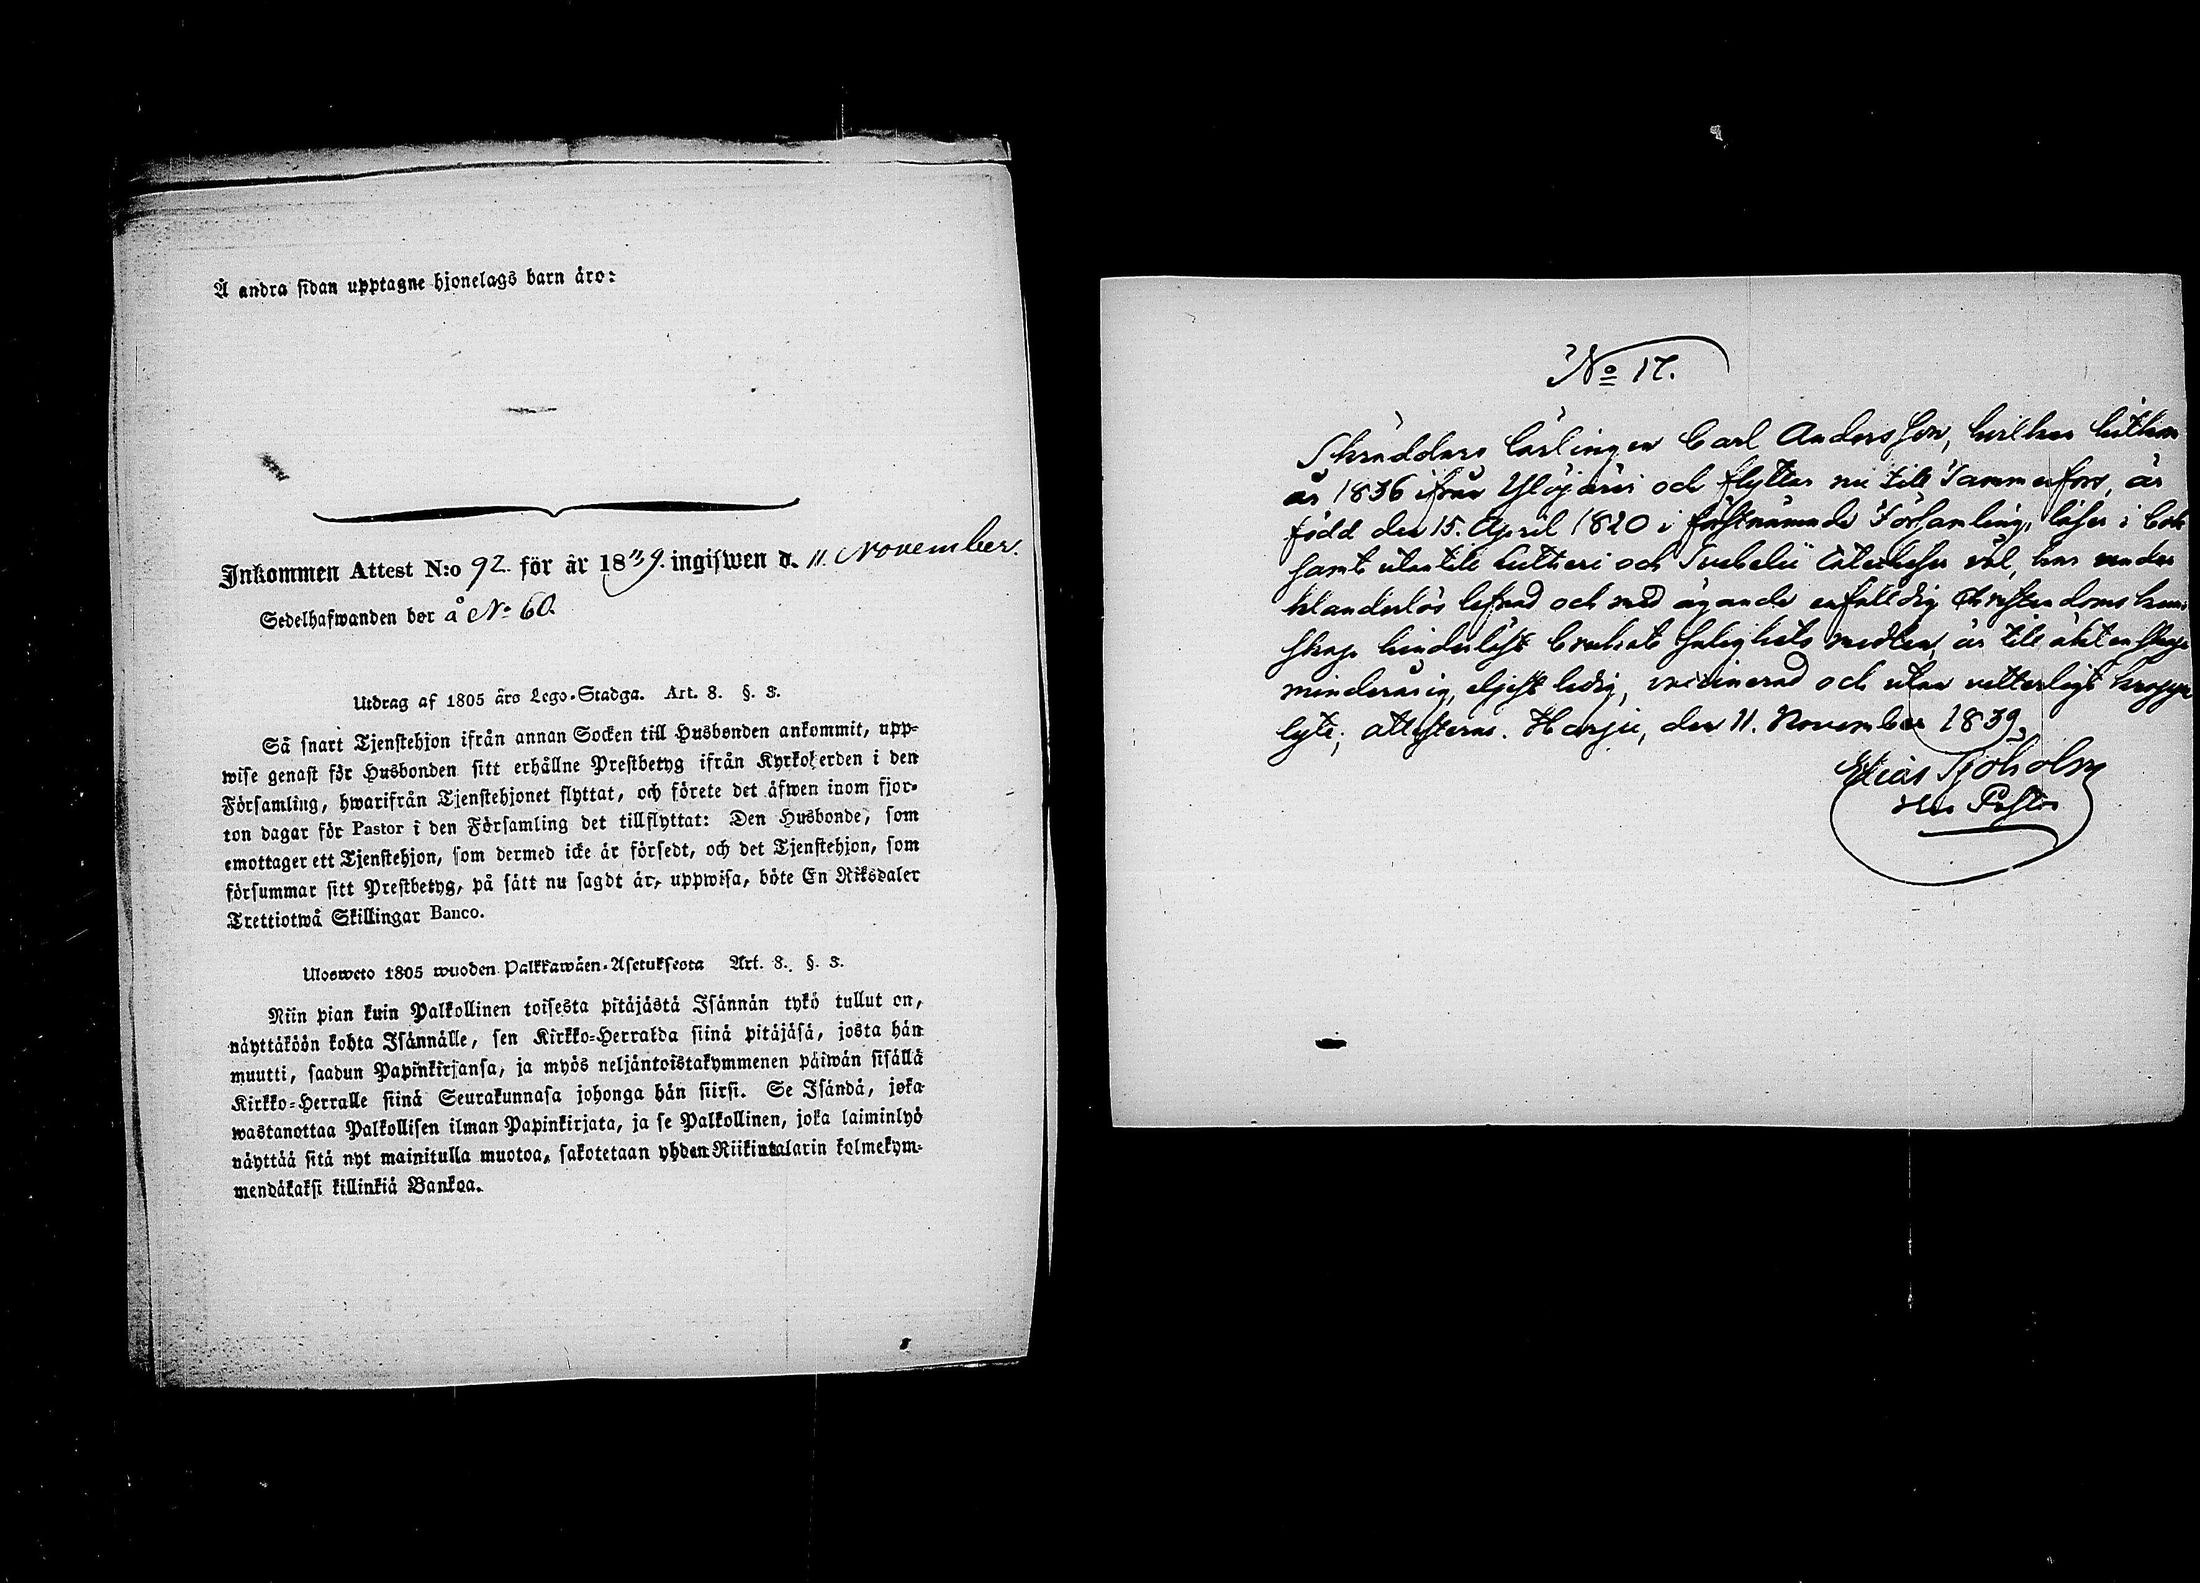 Å andra sidan upptagne hjonelags barn äro:
Inkommen Attest N:o 92. för år 1839. ingifwen d. 11. November.
Sedelhafwanden bor å No 60.
Utdrag af 1805 års Lego-Stadga. Art. 8. §. 3.
Så snart Tjenstehjon ifrån annan Socken till Husbonden ankommit, upp-
wise genast för Husbonden sitt erhållne Prestbetyg ifrån Kyrkoherden i den
Församling, hwarifrån Tjenstehjonet flyttat, och förete det äfwen inom fjor-
ton dagar för Pastor i den Församling det tillflyttat: Den Husbonde, som
emottager ett Tjenstehjon, som dermed icke är försedt, och det Tjenstehjon, som
försummar sitt Prestbetyg, på sätt nu sagdt är, uppwisa, böte En Riksdaler
Trettiotwå Skillingar Banco.
Ulosweto 1805 wuoden Palkkawäen-Asetuksesta Art. 8. §. 3.
Niin pian kuin Palkollinen toisesta pitäjästä Isännän tykö tullut on,
näyttäköön kohta Isännälle, sen Kirkko-Herralda siinä pitäjäsä, josta hän
muutti, saadun Papinkirjansa, ja myös neljäntoistakymmenen päiwän sisällä
Kirkko-Herralle siinä Seurakunnasa johonga hän siirsi. Se Isändä, joka
wastanottaa Palkollisen ilman Papinkirjata, ja se Palkollinen, joka laiminlyö
näyttää sitä nyt mainitulla muotoa, sakotetaan yhden Riikintalarin kolmekym-
mendäkaksi killinkiä Bankoa.
No 17.
Skräddare lärlingen Carl Andersson, hvilken hitkom
år 1836 ifrån Ylöjärvi och flyttar nu till Tammerfors, är
född den 15. April 1820 i förstnämnde Församling, läser i bok
samt utantill Lutheri och Svebelii Catecheser väl, har under
klanderlös lefnad och med ägande enfalldig Christendoms kun-
skap hinderlöst brukat salighets medlen, är till äktenskap
minderårig, eljest ledig, vaccinerad och utan vetterligt kropps
lyte; attesteras. Harju, den 11. November 1839.
Elias Sjöholm
Pastor